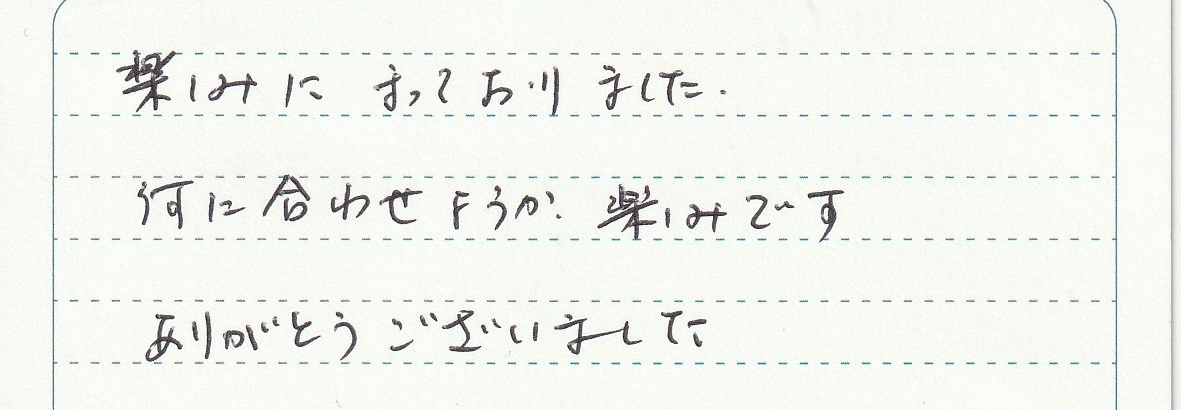 楽しみに まっており ました.
何に合わせようか. 楽しみです
ありがとうございました